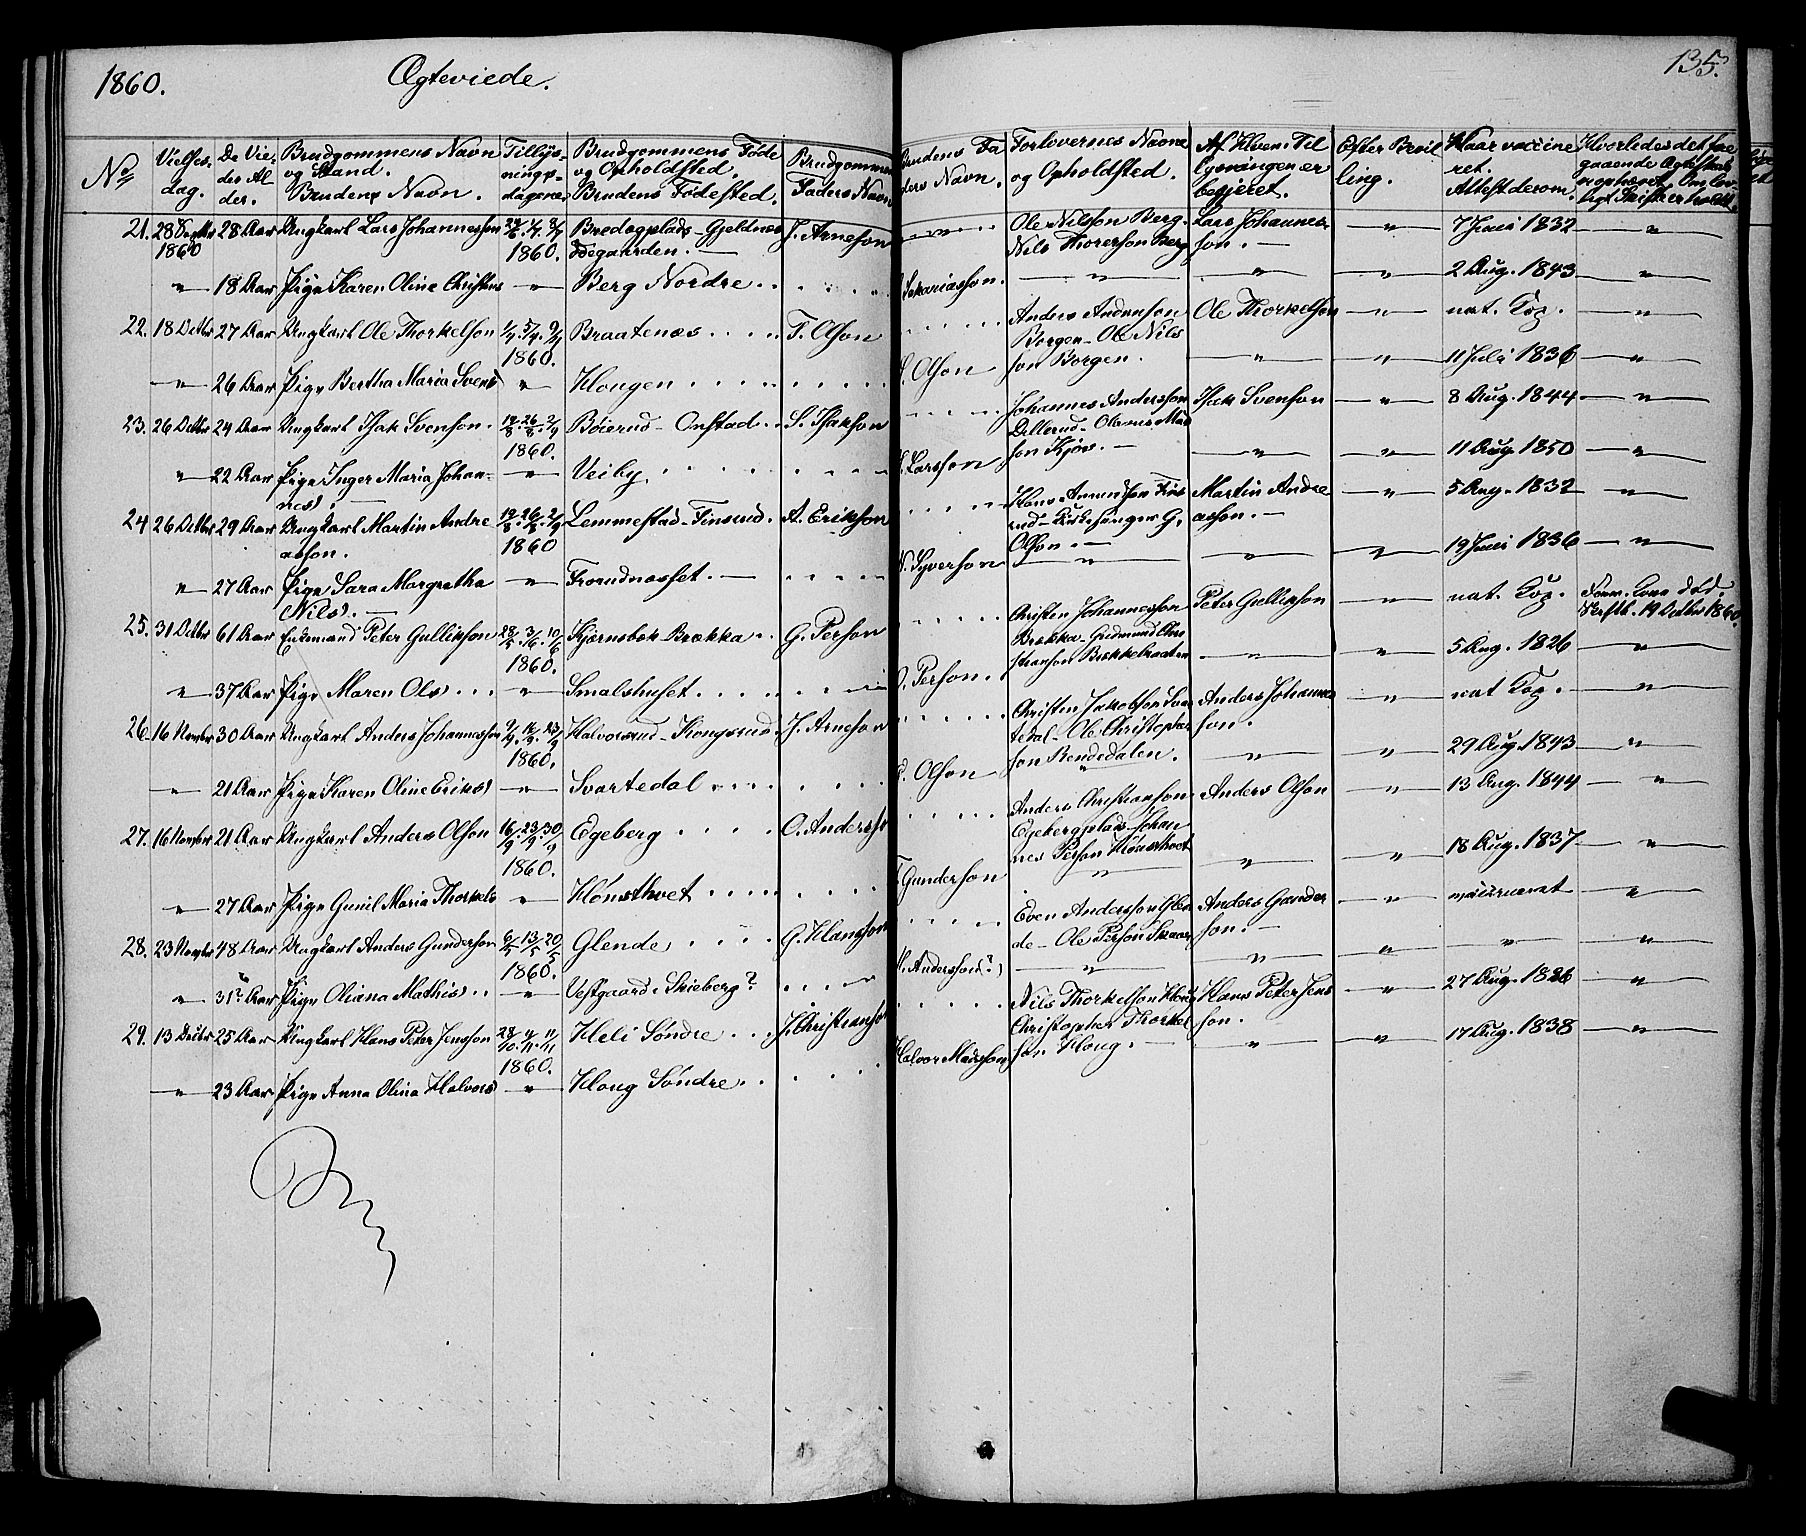 1860. Ægteviede. 135.
No Vielses dag. De Vie des Al der. Brudgommens Navn og Stand. Brudens Navn. Tillys ningsdagene Brudgommens Føde og Opholdsted. Brudens Fødested. Brudgommens Faders Navn Brudens Fa ders Navn. Forlovernes Navne og Opholdsted. Af Hvem Til lysningen er begjeret. Efter Bevil ling. Naar vaccine ret. Attest derom. Hvorledes det fore gaaende Ægteskab er ophævet
21. 28 Septbr 1860 28 Aar Ungkarl Lars Johannesson 1860. Bredagplads - Gjeldnes Østgaarden. — J. Arneson — " — Ole Nilsson Berg. Nils Thorerson Berg Lars Johannes son. — — " — 7 Juni 1832 — " —
— " — 18 Aar Pige Karen Oline Christens — " — Berg Nordre Sakariasson. — " — — " — — " — 2 Aug. 1843 — " —
22. 18 Octbr 27 Aar Ungkarl Ole Thorkelson 1/4. 5/4. 9/4 1860. Braatenæs T. Olson Anders Anderson Borgen - Ole Nils son Borgen. Ole Thorkelson — " — nat. Kop. — " —
— " — 26 Aar Pige Bertha Maria Svens — " — Hougen S. Olson — " — — " — 11 Juli 1836 — " —
23. 26 Octbr 24 Aar Ungkarl Isak Svenson. 19/8. 26/8. 2/9 1860. Bøierud - Onstad S. Isakson Johannes Andersson Dillerud - Olavus Mad son Kjøs. — Isak Svenson — " — 8 Aug. 1844 — " —
— " — 22 Aar Pige Inger Maria Johan nes) — — " — Veiby. Larsson — " — — " — 11 Aug. 1850 — " —
24 26 Octbr 29 Aar Ungkarl Martin Andre asson. 19/8. 26/8. 2/9 1860 Lemmestad - Finsrud. A. Erikson Hans Amundson Fins rud - Kirkesanger G. Olson. — Martin Andre asson. — — " — 5 Aug. 1832 — " —
— " — 27 Aar Pige Sara Margretha Nils). — — " — Frorudnæsset. — N. Syverson — " — — " — — " — 19 Juni 1836 — " —
25. 31 Octbr 61 Aar Enkemand Peter Gulliksson 28/5. 3/6. 10/6 1860. Kjærnsbæk Brækka G. Person Christen Johannesson Brækka - Gudmund Chri stianson Bækkebraaten Peter Gullikson — " — nat. Kop. Form. Kone død. Skiftb. 19 Octbr 1860.
— " — 37 Aar Pige Maren Ols) — " — Smalshuset O. Person. — " — — " — 5 Aug. 1826 — " —
26. 16 Novbr 30 Aar Ungkarl Anders Johannesson 1860. Halvorsrud - Kongsrud J. Arneson Christen Jakobson Svar tedal - Ole Christopher son Rendedalen. Anders Johannes son. — " — nat Kop. — " —
— " — 21 Aar Pige Karen Oline Eriks) — " — Svartedal E. Olson — " — — " — 29 Aug. 1843 — " —
27. 16 Novbr 21 Aar Ungkarl Anders Olson 16/9. 23/9. 30/9 1860. Egeberg O. Anderss Anders Christianson Egebergplads - Johan nes Person Hønsthvet Anders Olson — " — 13 Aug. 1844 — " —
— " — 27 Aar Pige Gunil Maria Thorkels — " — Hønsthvet T. Gunderson — " — — " — — " — 18 Aug. 1837 — " —
28. 23 Novbr 48 Aar Ungkarl Anders Gunderson 6/5. 13/5. 20/5 1860. Glende G. Hansson Even Andersson Glen de - Ole Person Skaar Anders Gunder son. — — " —  — " —
— " — 31 Aar Pige Oliana Mathis) — " — Vestgaard i Skieberg? M. Andersson(?) — " — — " — — " — — " — — " —
29. 13 Decbr 25 Aar Ungkarl Hans Peter Jensson 28/10. 4/11. 11/11 1860. Heli Søndre J. Christianson Nils Thorkelson Houg Christopher Thorkel son Houg. — Hans Peter Jens son. — " — 27 Aug. 1836 — " —
— " — 23 Aar Pige Anna Olina Halvors) — " — Houg Søndre Halvor Madsson — " — — " — 17 Aug. 1838 — " —